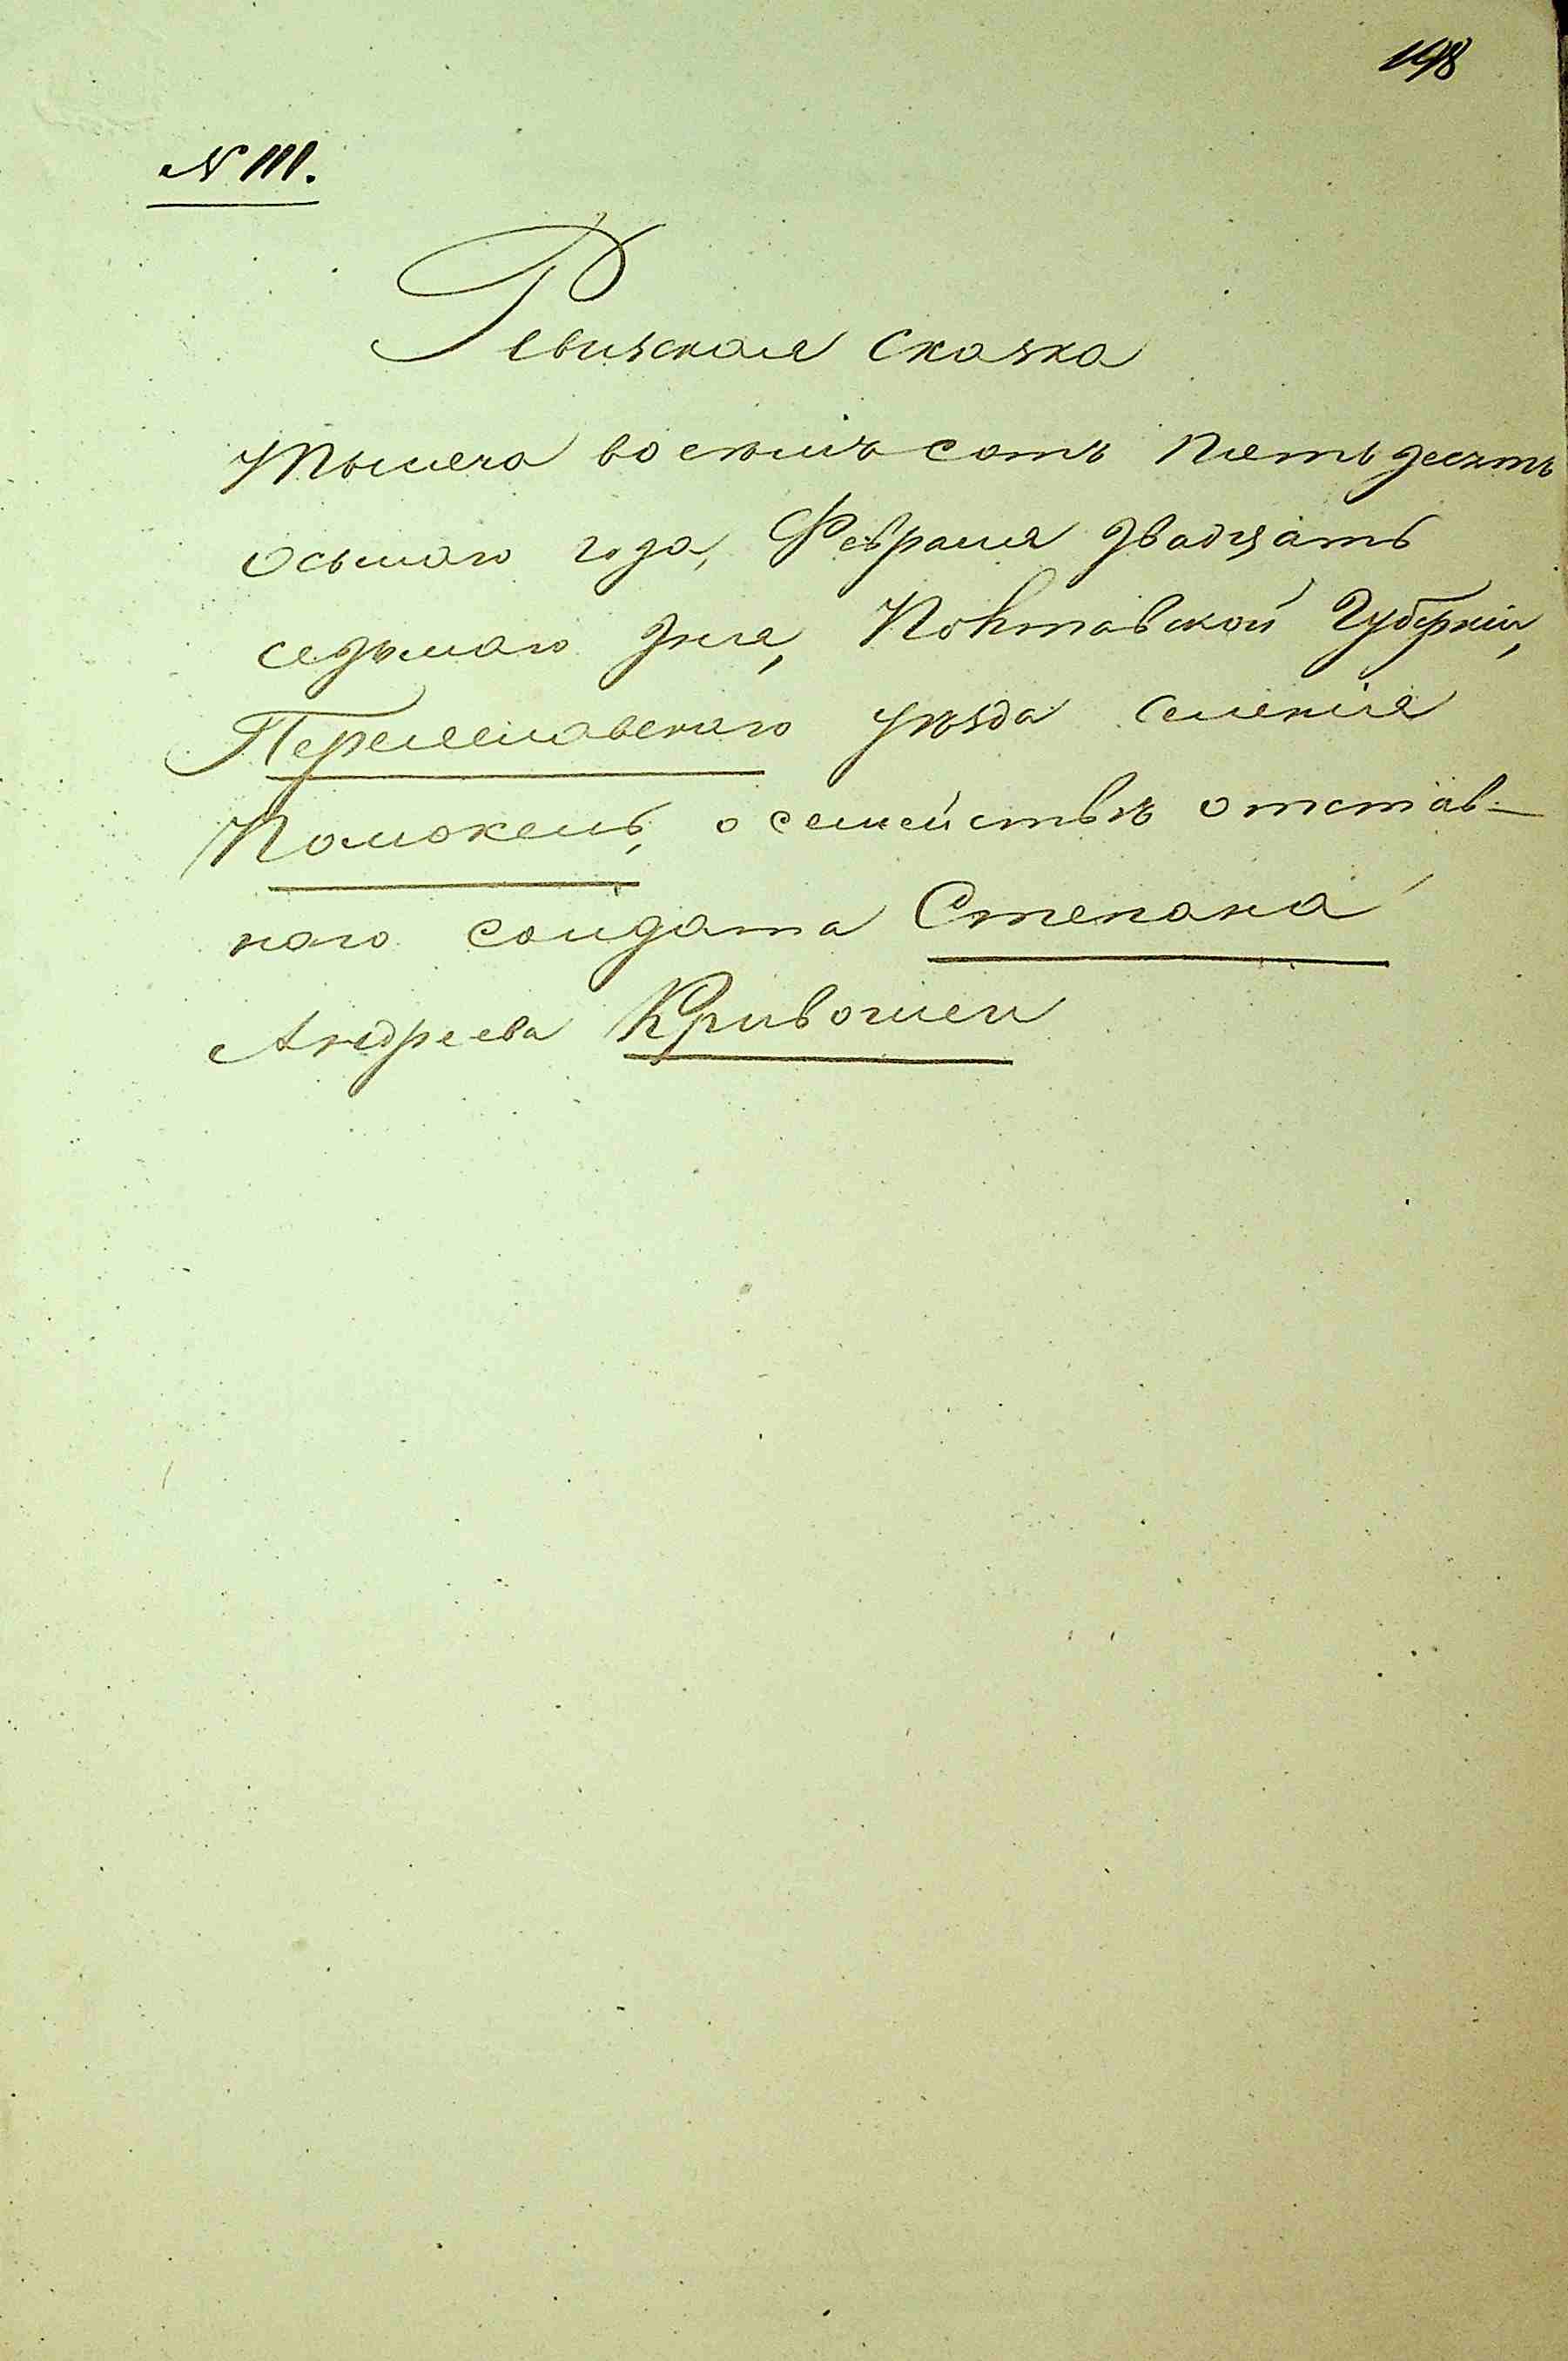 148
№ 111.
Ревизская сказка
Тысяча восемьсотъ пятьдесятъ
осьмаго года, Февраля двадцать
седьмаго дня, Полтавской Губерніи,
Переяславскаго уѣзда селенія
Помоклей, о семействѣ отстав-
наго солдата Степана
Андреева Кривошеи